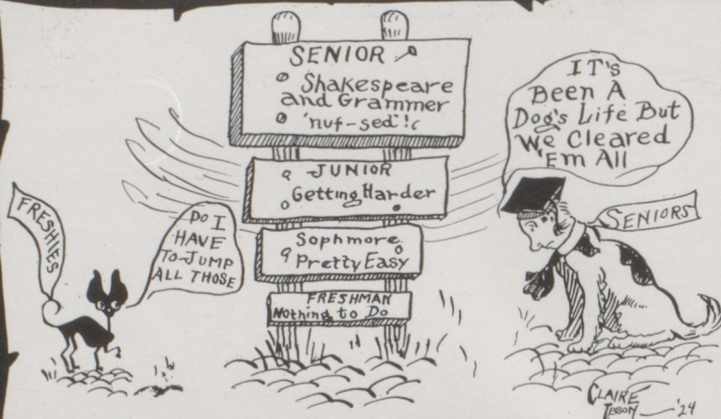 SENIOR
Shakespeare
and Grammer
'nuf-sed'!
JUNIOR
Getting Harder
Sophmore
Pretty Easy
FRESHMAN
Nothing to Do
FRESHIES
DO I
HAVE
TO JUMP
ALL THOSE
IT'S
Been A
Dog's Life But
We Cleared
'Em All
SENIORS
CLAIRE
'24